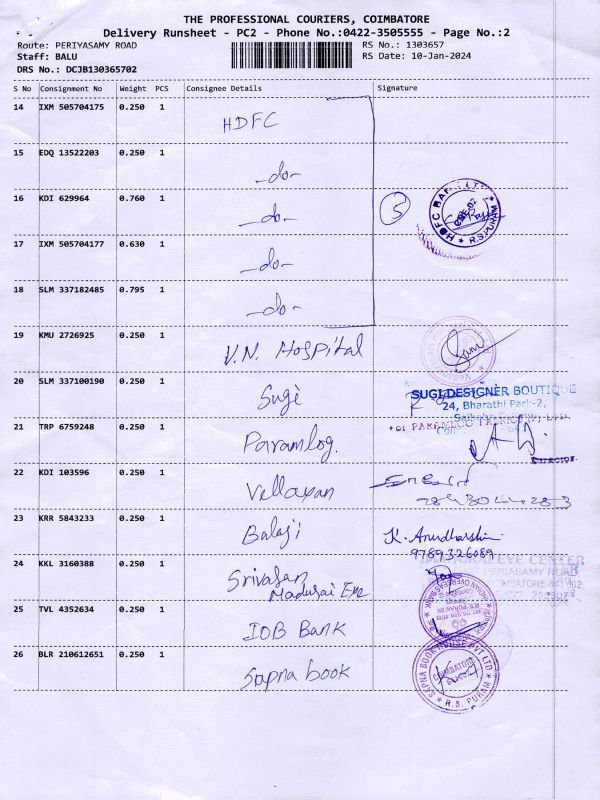 THE PROFESSIONAL COURIERS, COIMBATORE
Delivery Runsheet - PC2 - Phone No.:0422-3505555 - Page No.:2
Route: PERIYASAMY ROAD
RS No.: 1303657
Staff: BALU
RS Date: 10-Jan-2024
DRS No.: DCJB130365702
S No Consignment No Weight PCS Consignee Details Signature
14 IXM 505704175 0.250 1 HDFC
15 EDQ 13522203 0.250 1 -do-
16 KDI 629964 0.760 1 -do- 5
HDFC BANK LTD R.S.PURAM
17 IXM 505704177 0.630 1 -do-
18 SLM 337182485 0.795 1 -do-
19 KMU 2726925 0.250 1 V.N. Hospital
20 SLM 337100190 0.250 1 Sugi
SUGI DESIGNER BOUTIQUE
24, Bharathi Park-2,
21 TRP 6759248 0.250 1 Paramlog.
DIRECTOR
22 KDI 103596 0.250 1 Vellayan
23 KRR 5843233 0.250 1 Balaji K. Anudharshini
9789326089
24 KKL 3160388 0.250 1 Srivasan
Madurai Eye
EYE CENTER
PERIYASAMY ROAD,
25 TVL 4352634 0.250 1 IOB Bank
INDIAN OVERSEAS BANK
R.S. PURAM BR
26 BLR 210612651 0.250 1 Sapna book
SAPNA BOOK HOUSE PVT LTD
COIMBATORE
R.S. PURAM